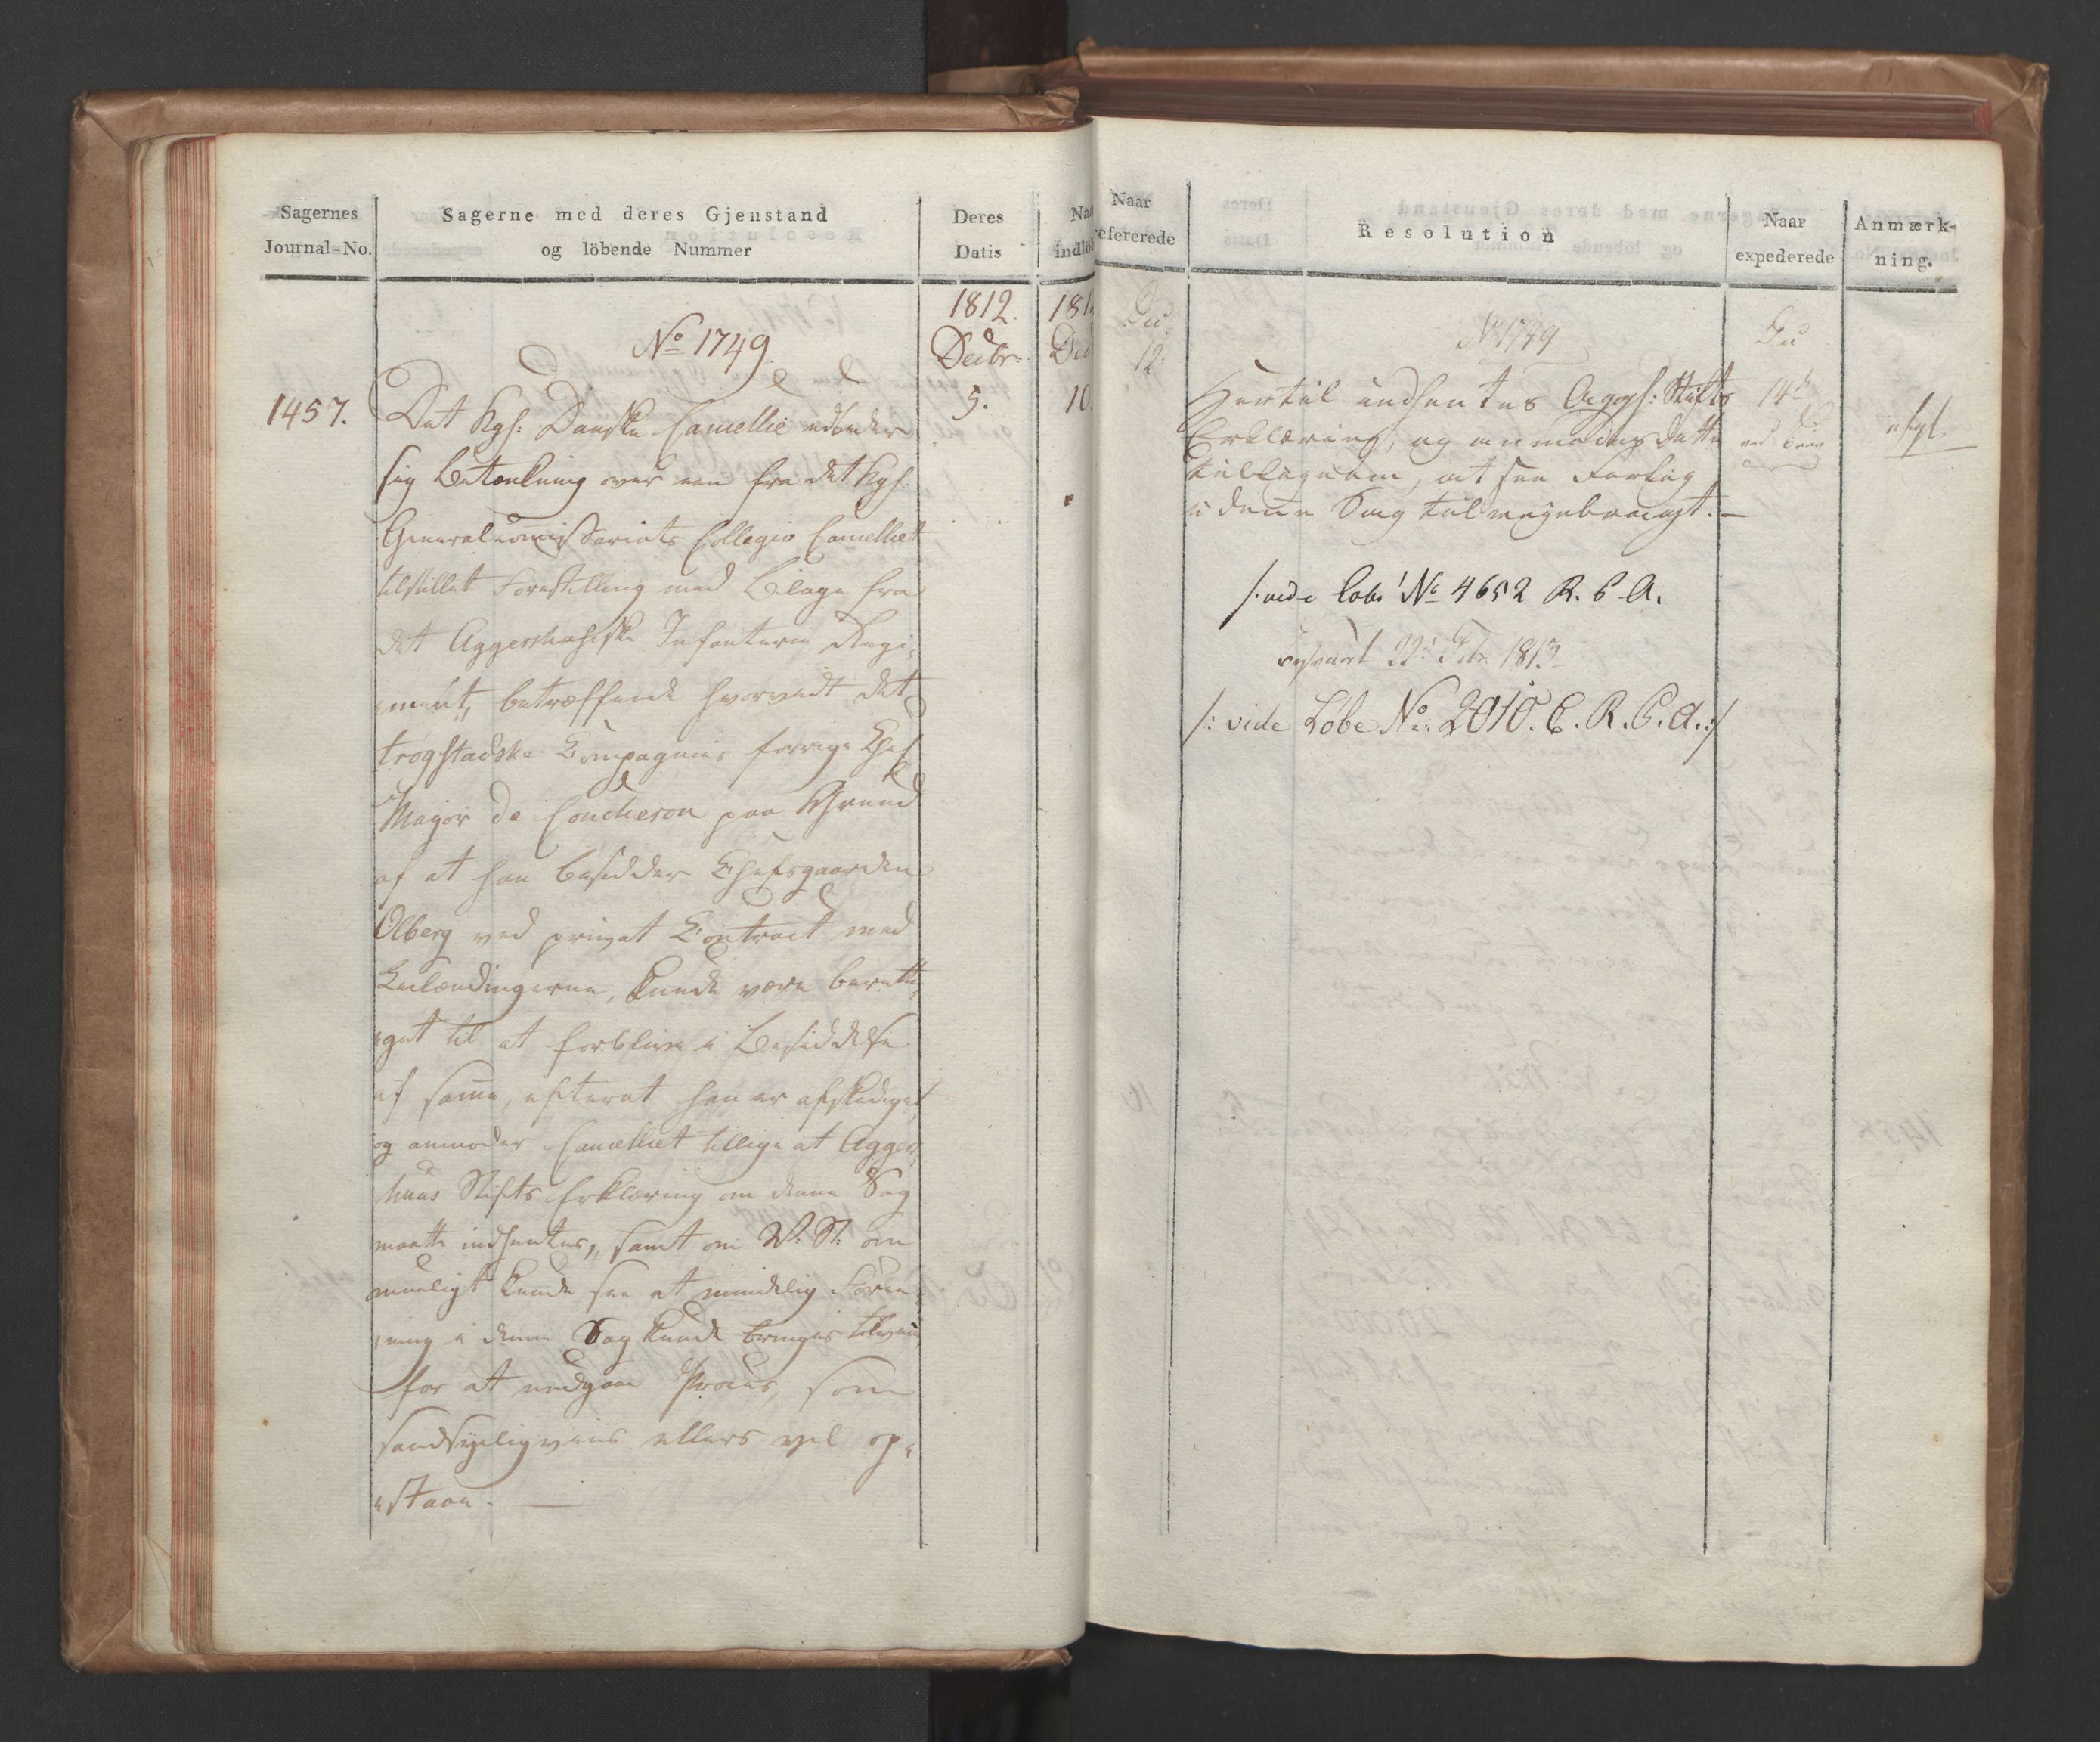 Sagernes
Journal-No.
Sagerne med deres Gjenstand
og löbende Nummer
Deres
Datis
Naar
indlöb
1812.
Decbr:
181
Dec
No 1749.
1457.
5.
10.
Det Kgl: Danske Cancellie udbeder
sig Betænkning over een fra det Kgl.
Generalcommissariats Collegio Cancelliet
tilstillet Forestilling med Bilage fra
det Aggershuusiske Infanterie Regi-
ment, betræffende hvorvidt det
trögstadske Compagnies forrige Chef
Major de Coucheron paa Grund
af at han besidder Chefsgaarden
Olberg ved privat Contract med
Leilændingerne, kunde være beretti-
get til at forblive i Besiddelse
af samme, efterat han er afskediget,
og anmoder Cancelliet tillige at Agger-
huus Stifts Erklæring om denne Sag
maatte indhentes, samt om
mueligt kunde see at mindelig Foree-
ning i denne Sag kunde bringes tilveie
for at undgaae Proces, som
sandsynligviis ellers vil op-
staae. —
Naar
refererede
Resolution
Naar
expederede
Anmærk-
ning.
Du
12:
No 1749
Du
14de
Hertil indhentes Aggrh: Stifts
Erklæring, og anmodes dette
tillige om, at see Forlig
i denne Sag tilveiebragt. —
ved Brev
afgl.
/: vide Løbe No 4652 R. C. A.
22 Febr 1813
/: vide Löbe No. 2010. C. R. C. A. :/